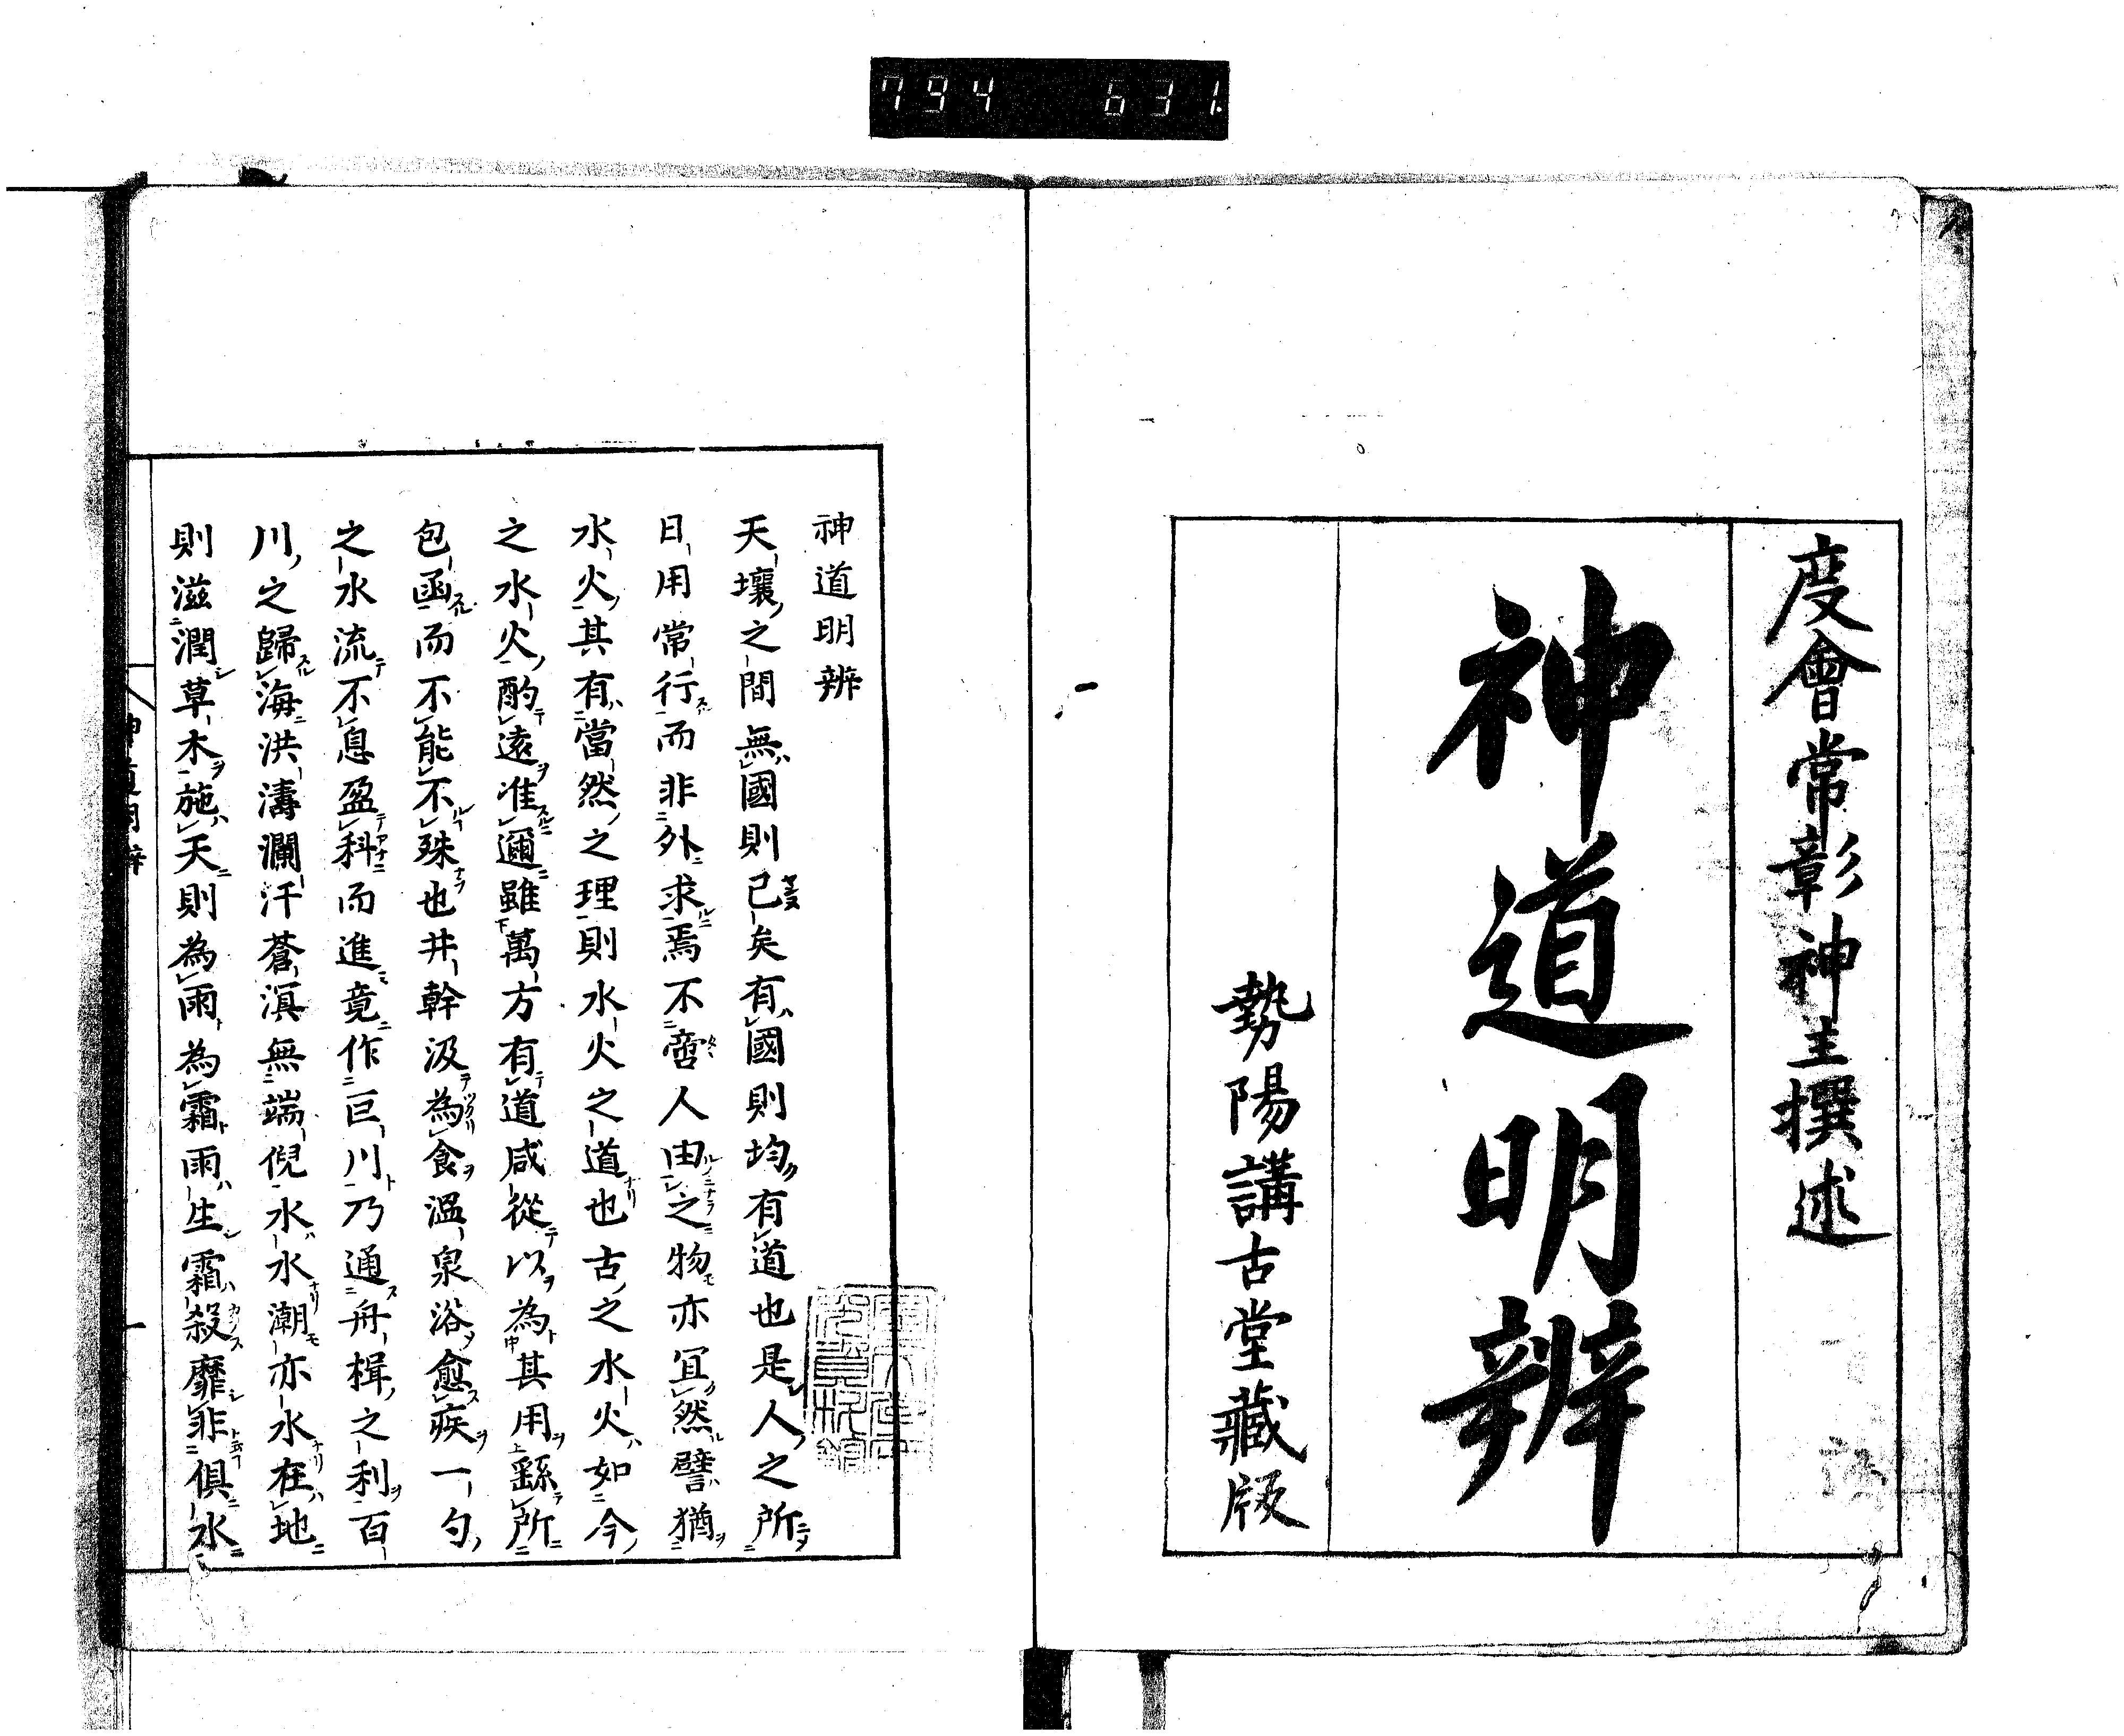 794 631
度會常彰神主撰述
神道明辨
勢陽講古堂藏版
神道明辨
天壤之間無國則已矣有國則均有道也是人之所
日用常行而非外求焉不啻人由之物亦冝然譬猶
水火其有當然之理則水火之道也古之水火如今
之水火酌遠准邇雖萬方有道咸從以為其用繇所
包函而不能不殊也井幹汲為食溫泉浴愈疾一勺
之水流不息盈科而進竟作巨川乃通舟楫之利百
川之歸海洪濤瀾汗蒼溟無端倪水水潮亦水在地
則滋潤草木施天則為雨為霜雨生霜殺靡非俱水